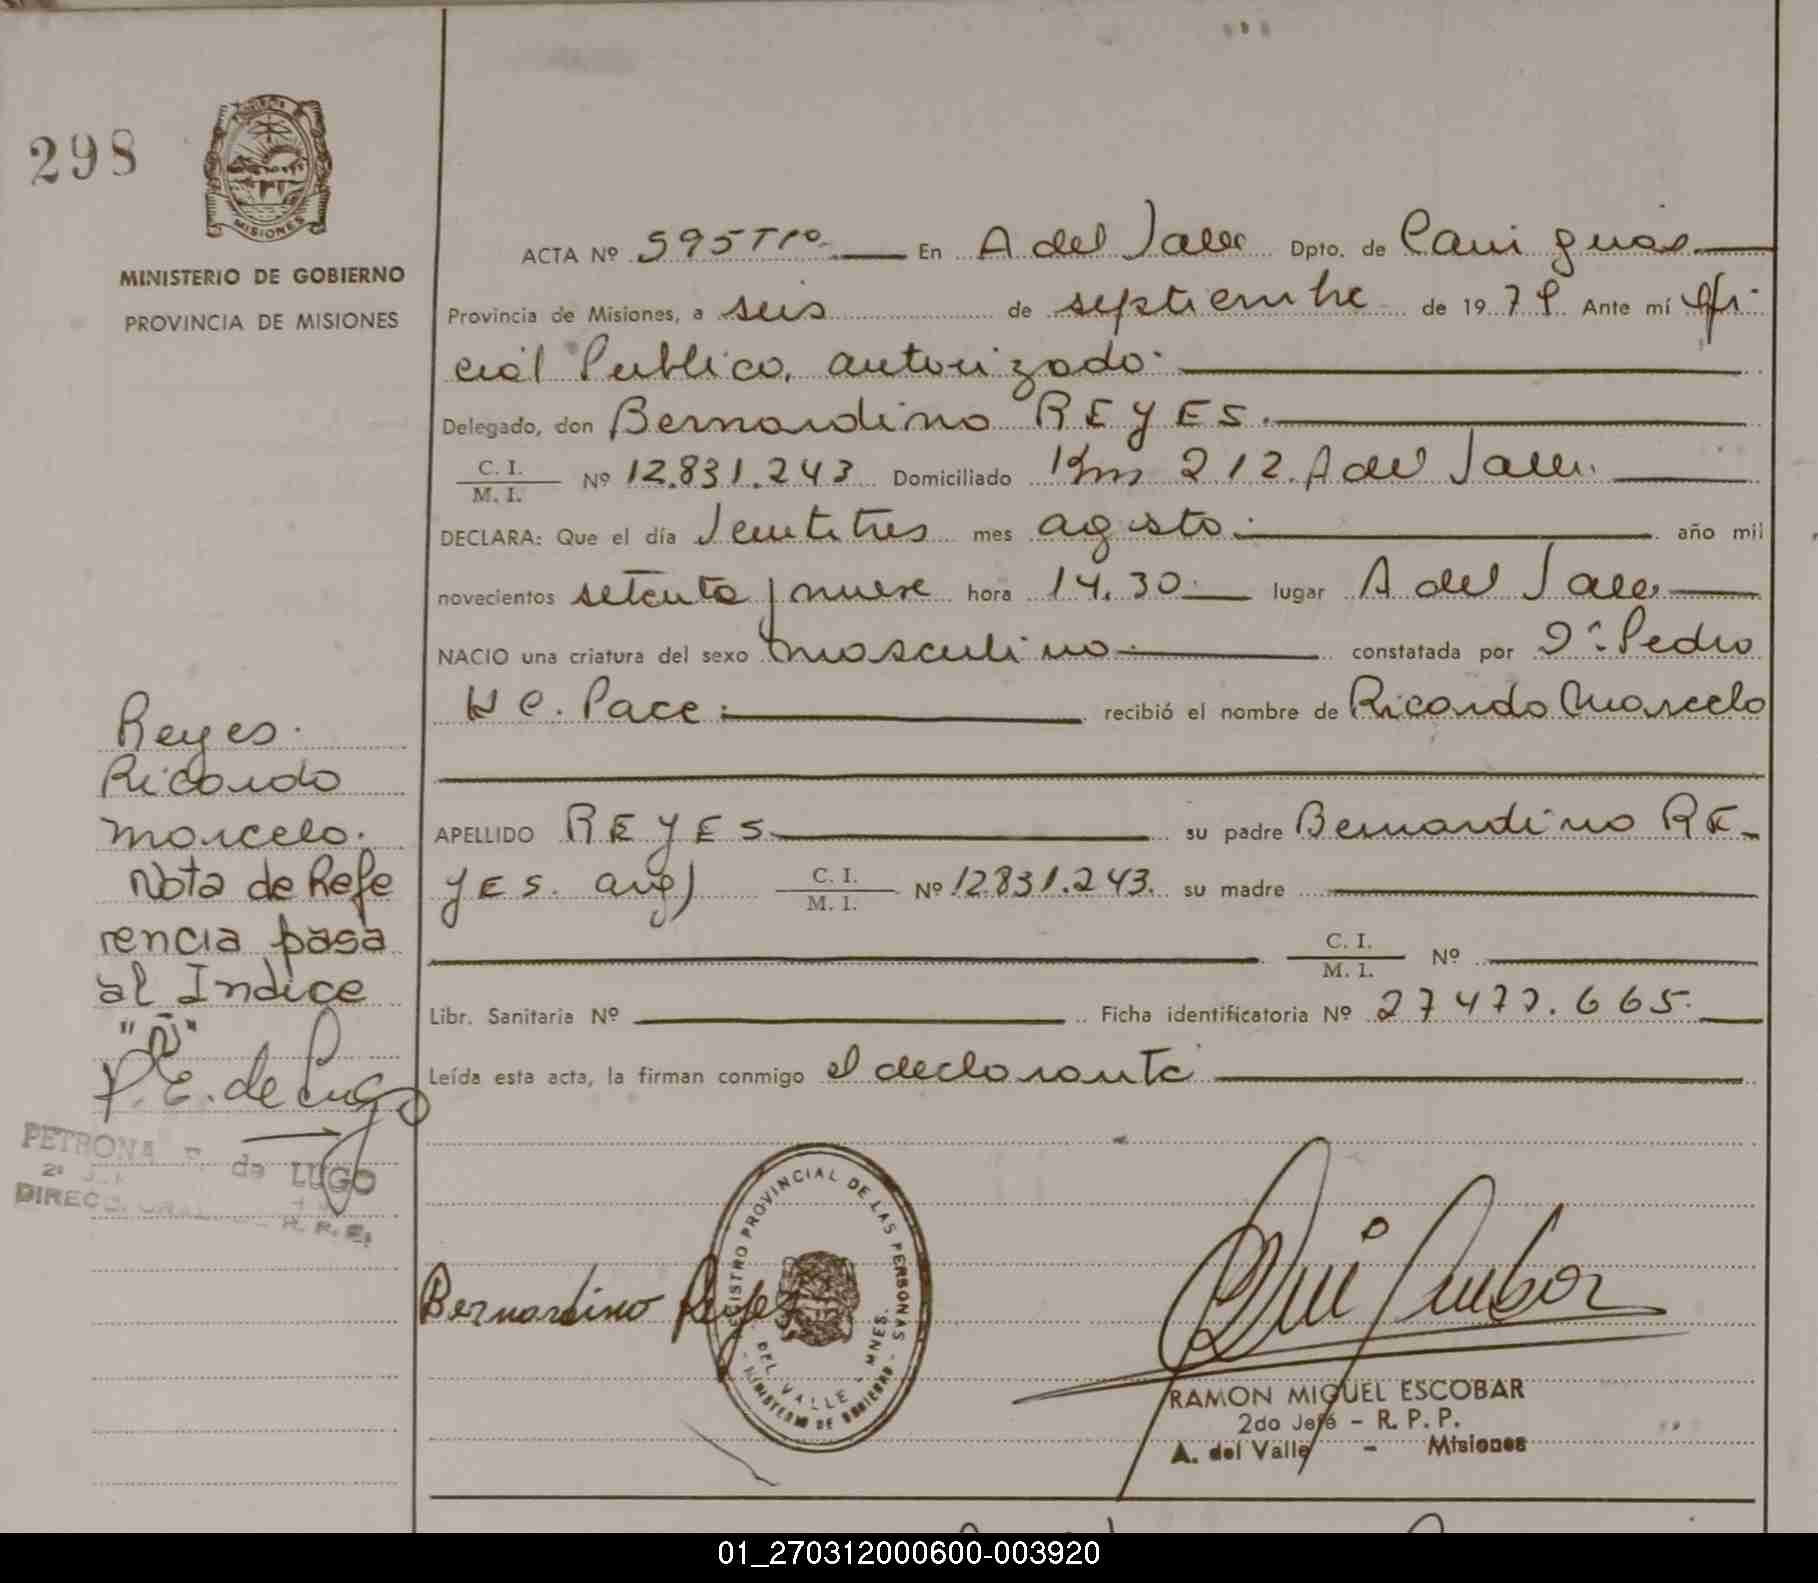 298
MISIONES
MINISTERIO DE GOBIERNO
PROVINCIA DE MISIONES
ACTA Nº 595 Tº 1º En A del Valle Dpto. de Cainguas
Provincia de Misiones, a seis de septiembre de 1979 Ante mí Ofi
cial Publico, autorizado
Delegado, don Bernardino REYES.
C. I.
M. I. Nº 12.831.243 Domiciliado Km 212. A del Valle.
DECLARA: Que el día Veintitres mes agosto año mil
novecientos setenta y nueve hora 14.30 lugar A del Valle
NACIO una criatura del sexo masculino constatada por Dr. Pedro
H C. Pace recibió el nombre de Ricardo Marcelo
APELLIDO REYES su padre Bernardino RE-
YES. arg) C. I.
M. I. Nº 12.831.243. su madre
C. I.
M. I. Nº
Libr. Sanitaria Nº Ficha identificatoria Nº 27.477.665.
Leída esta acta, la firman conmigo el declarante
Reyes.
Ricardo
Marcelo.
Nota de Refe
rencia pasa
al Indice
"Ñ"
P. E. de Lugo
PETRONA de LUGO
Bernardino Reyes
REGISTRO PROVINCIAL DE LAS PERSONAS
DEL VALLE - MNES.
MINISTERIO DE GOBIERNO
RAMON MIGUEL ESCOBAR
2do Jefe - R. P. P.
A. del Valle - Misiones
01_270312000600-003920